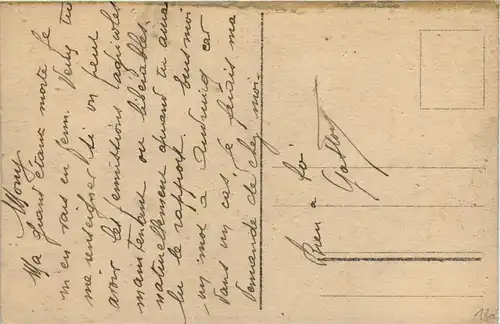 Mony
Ma quand étant morte je
m'en vais en perm. Veux tu
me renseigner si on peut
avoir les permissions agricoles
maintenant ou libérable
naturellement quand tu auras
lu le rapport. Envoi moi
un mot à car
dans un cas je ferais ma
demande de chez moi.
Bien à toi
Gaston
12